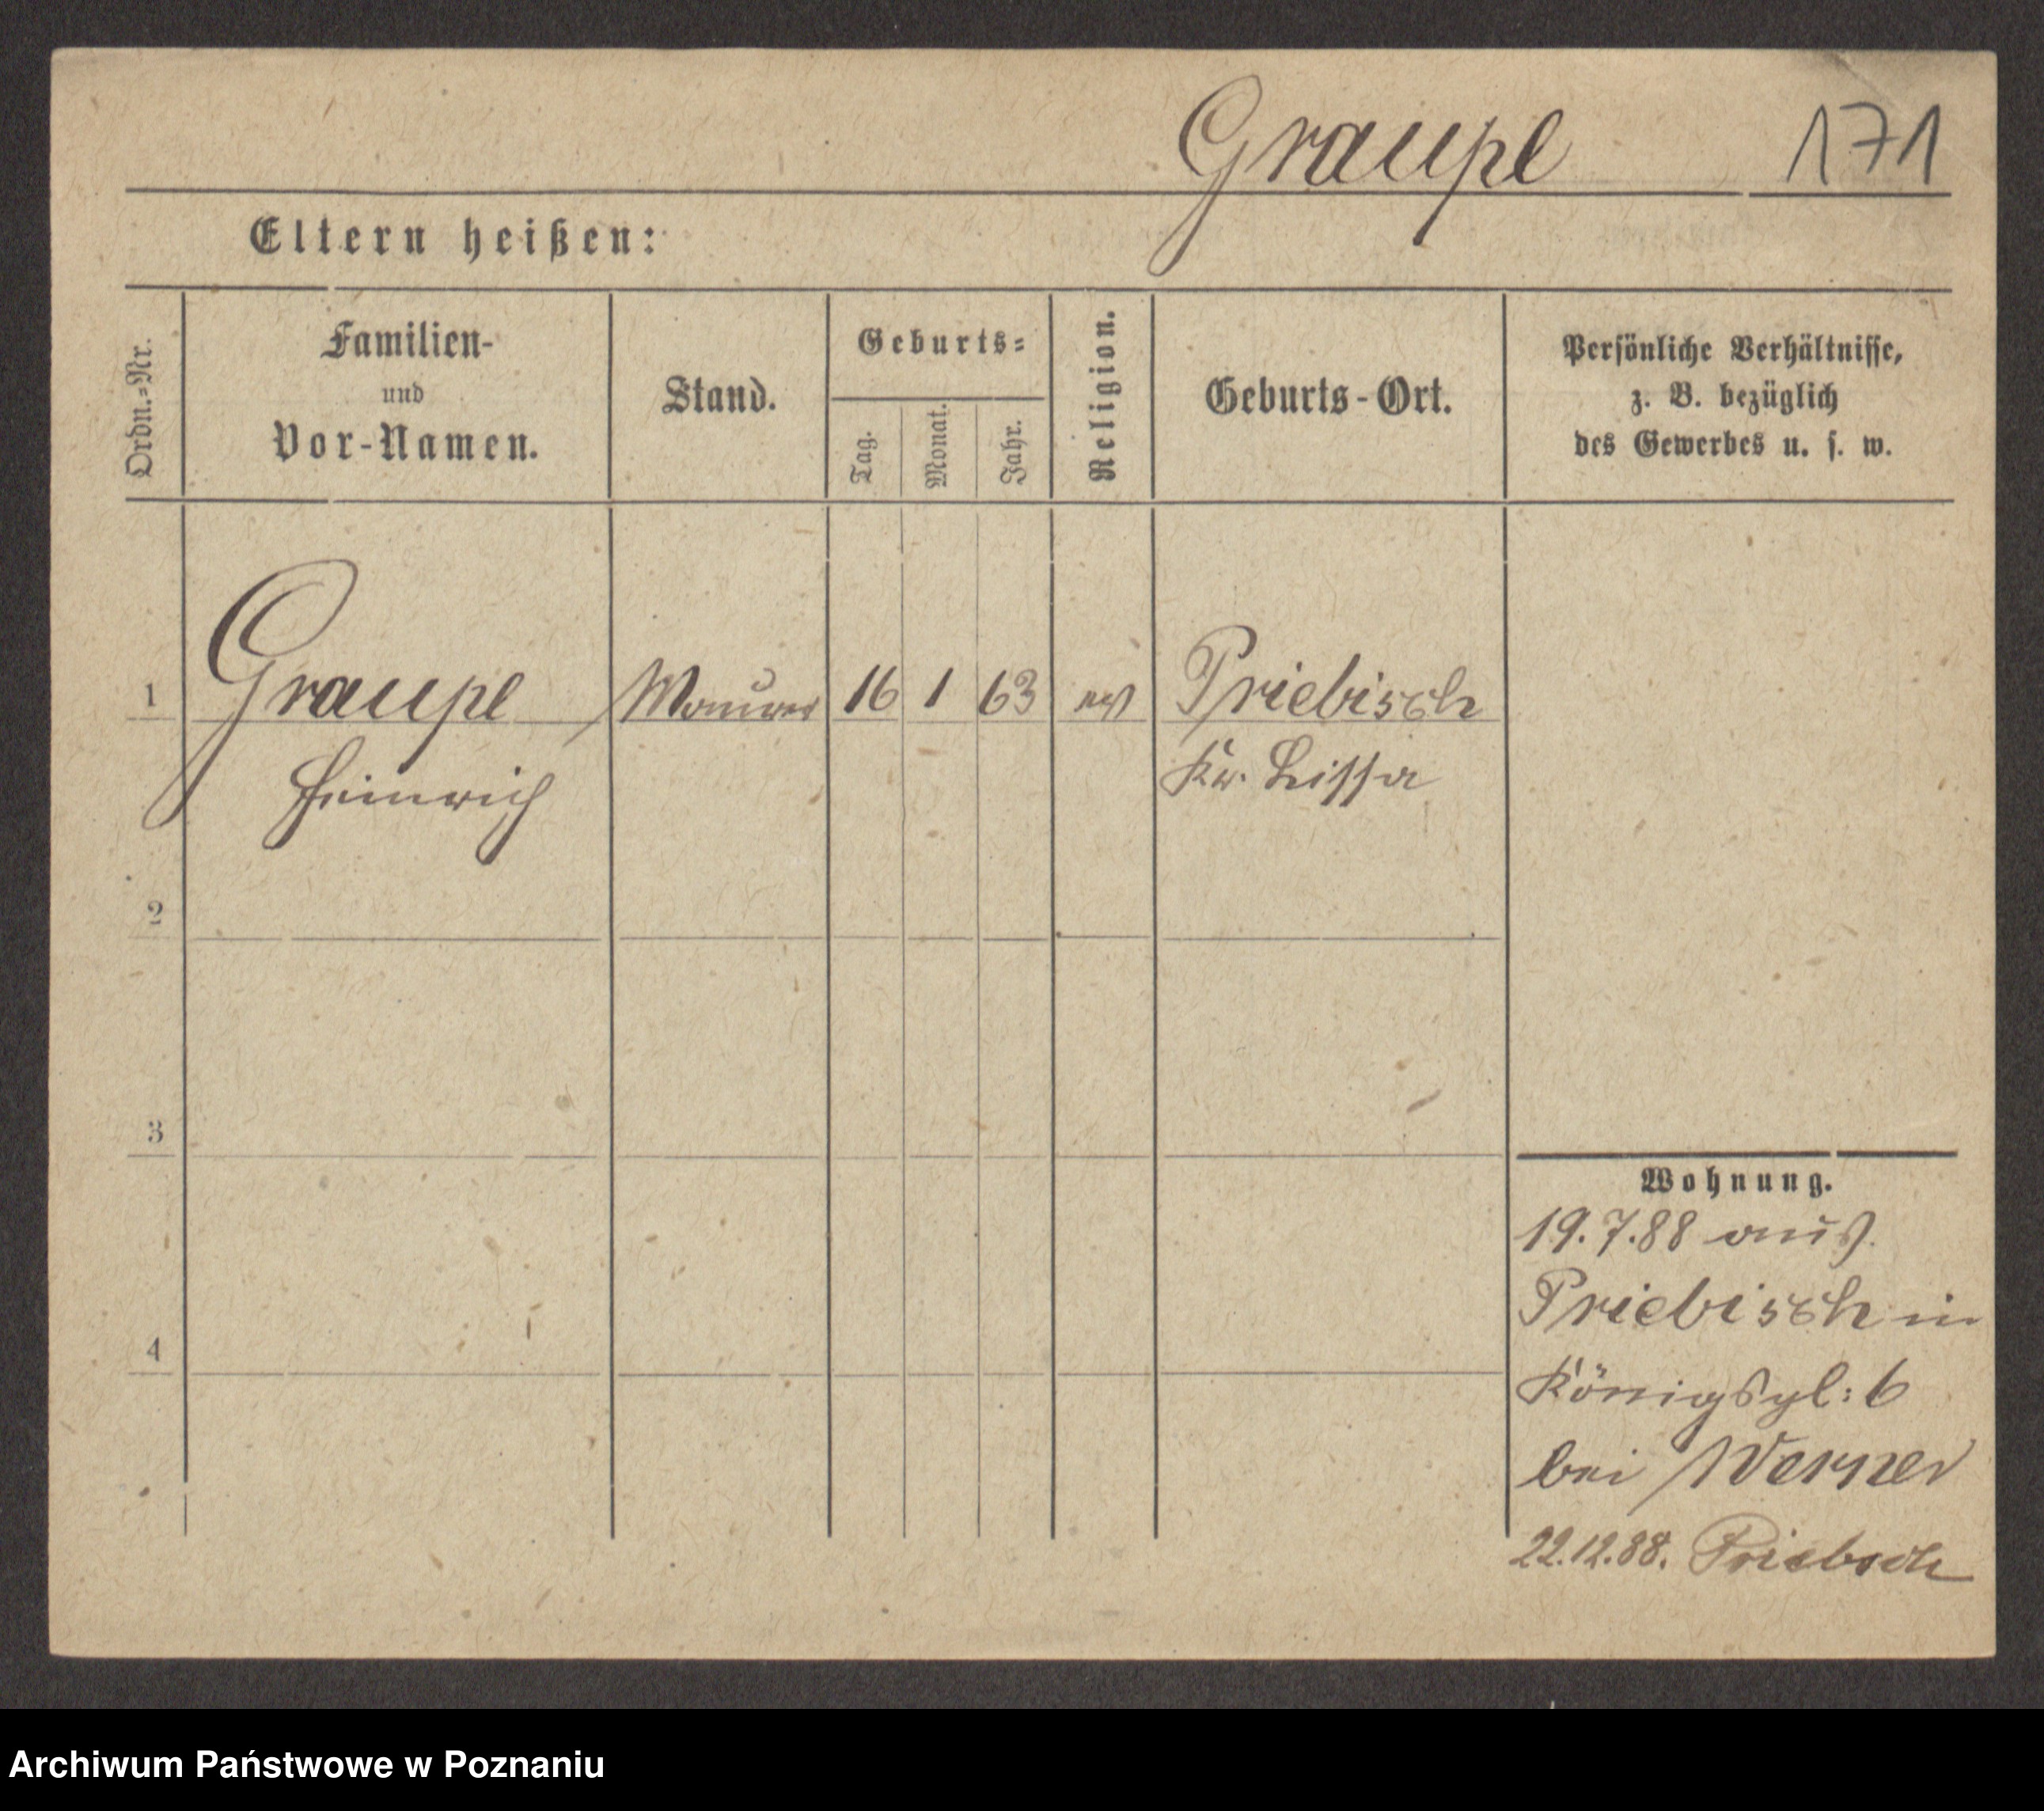 Graupe 171
Eltern heißen:
Ordn.=Nr.
Familien-
und
Vor-Namen.
Stand.
Geburts=
Tag.
Monat.
Jahr.
Religion.
Geburts-Ort.
Persönliche Verhältnisse,
z. B. bezüglich
des Gewerbes u. s. w.
1 Graupe Maurer 16 1 63 Priebisch
Heinrich Kr. Lissa
2
3
4
Wohnung.
19.7.88 aus
Priebisch in
Königspl: 6
bei Werner
22.12.88. Priebsch
Archiwum Państwowe w Poznaniu